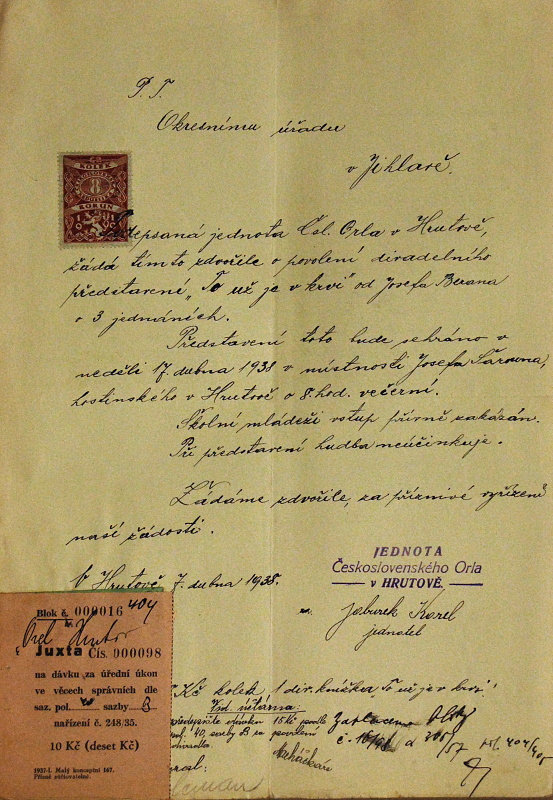 P. T.
Okresnímu úřadu
v Jihlavě.
KOLEK
8
KORUN
Podepsaná jednota Čsl. Orla v Hrutově,
žádá tímto zdvořile o povolení divadelního
představení „To už je v krvi" od Josefa Berana
o 3 jednáních.
Představení toto bude sehráno v
neděli 17. dubna 1938 v místnosti Josefa
hostinského v Hrutově o 8. hod. večerní.
Školní mládeži vstup přísně zakázán.
Při představení hudba neúčinkuje.
Žádáme zdvořile, za příznivé vyřízení
naší žádosti.
V Hrutově 7. dubna 1938.
JEDNOTA
Československého Orla
v HRUTOVĚ.
Karel
jednatel
Blok č. 000016 404
Orel Hrutov
Juxta Čís. 000098
na dávku za úřední úkon
ve věcech správních dle
saz. pol. sazby B
nařízení č. 248/35.
10 Kč (deset Kč)
1937-I. Malý konceptní 167.
Přímo súčtovatelné.
Kč kolek 1 div. knížka „To už je v krvi"
Vrd. účtárna:
15 Kč podle
pol. 40, sazby B za povolení